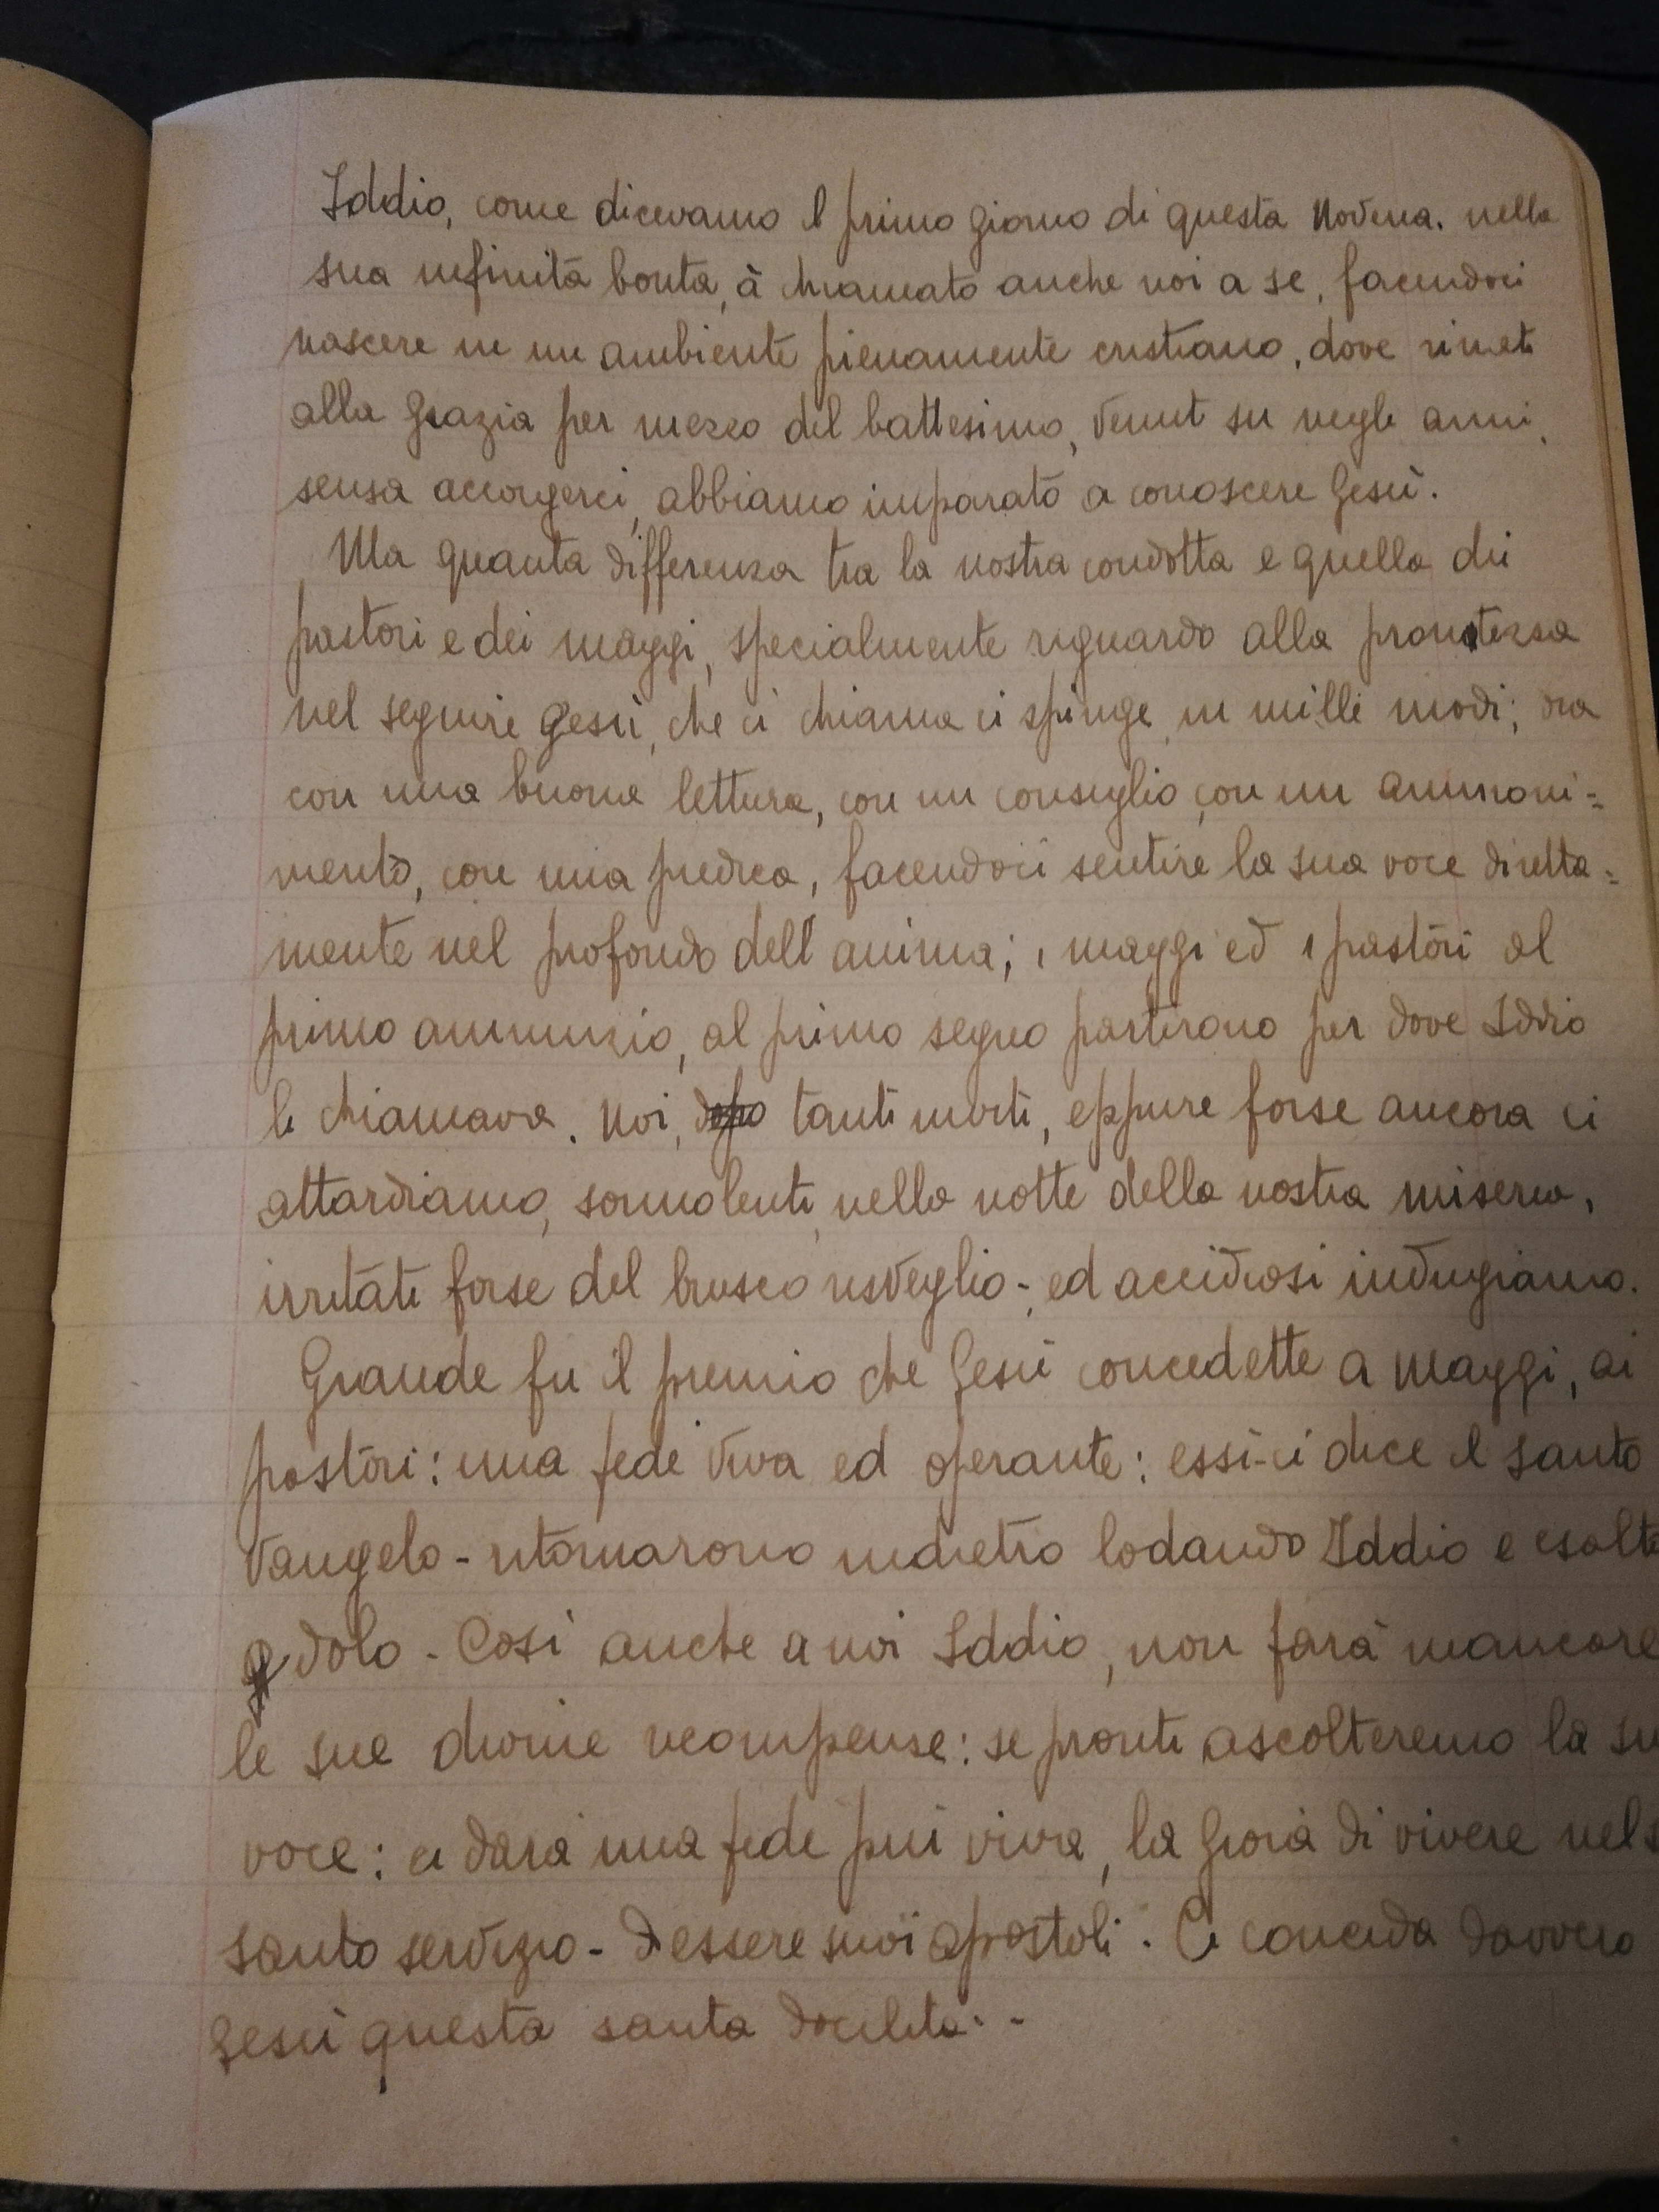 Iddio, come dicevamo il primo giorno di questa Novena. nella
sua infinità bontà, à chiamato anche noi a se, facendoci
nascere in un ambiente pienamente cristiano, dove rinati
alla Grazia per mezzo del battesimo, venuti su negli anni,
sensa accorgerci, abbiamo imparato a conoscere Gesù.
Ma quanta differenza tra la nostra condotta e quella dei
pastori e dei maggi, specialmente riguardo alla prontezza
nel seguire Gesù, che ci chiama ci spinge, in mille modi; ora
con una buona lettura, con un consiglio, con un ammoni=
mento, con una predica, facendoci sentire la sua voce diretta=
mente nel profondo dell'anima; i maggi ed i pastori al
primo annunzio, al primo segno partirono per dove Iddio
li chiamava. Noi, dopo tanti inviti, eppure forse ancora ci
attardiamo, sonnolenti, nella notte della nostra miseria,
irritati forse del brusco risveglio-, ed accidiosi indugiamo.
Grande fu il premio che Gesù concedette a Maggi, ai
pastori: una fede viva ed operante: essi-ci dice il Santo
Vangelo - ritornarono indietro lodando Iddio e esalta
dolo - Così anche a noi Iddio, non farà mancare
le sue divine ricompense: se pronti ascolteremo la su
voce: ci darà una fede più viva, la gioia di vivere nel s
santo servizio - d'essere suoi apostoli. Ci conceda davvero
Gesù questa santa docilità..-